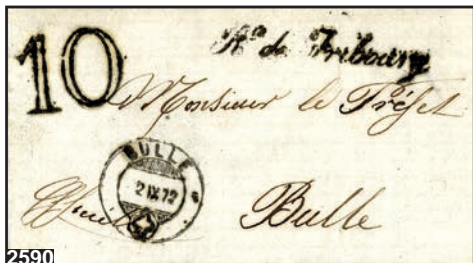 10
Rte de Fribourg
Monsieur le Préfet
BULLE
2 IX 72
Bulle
2590